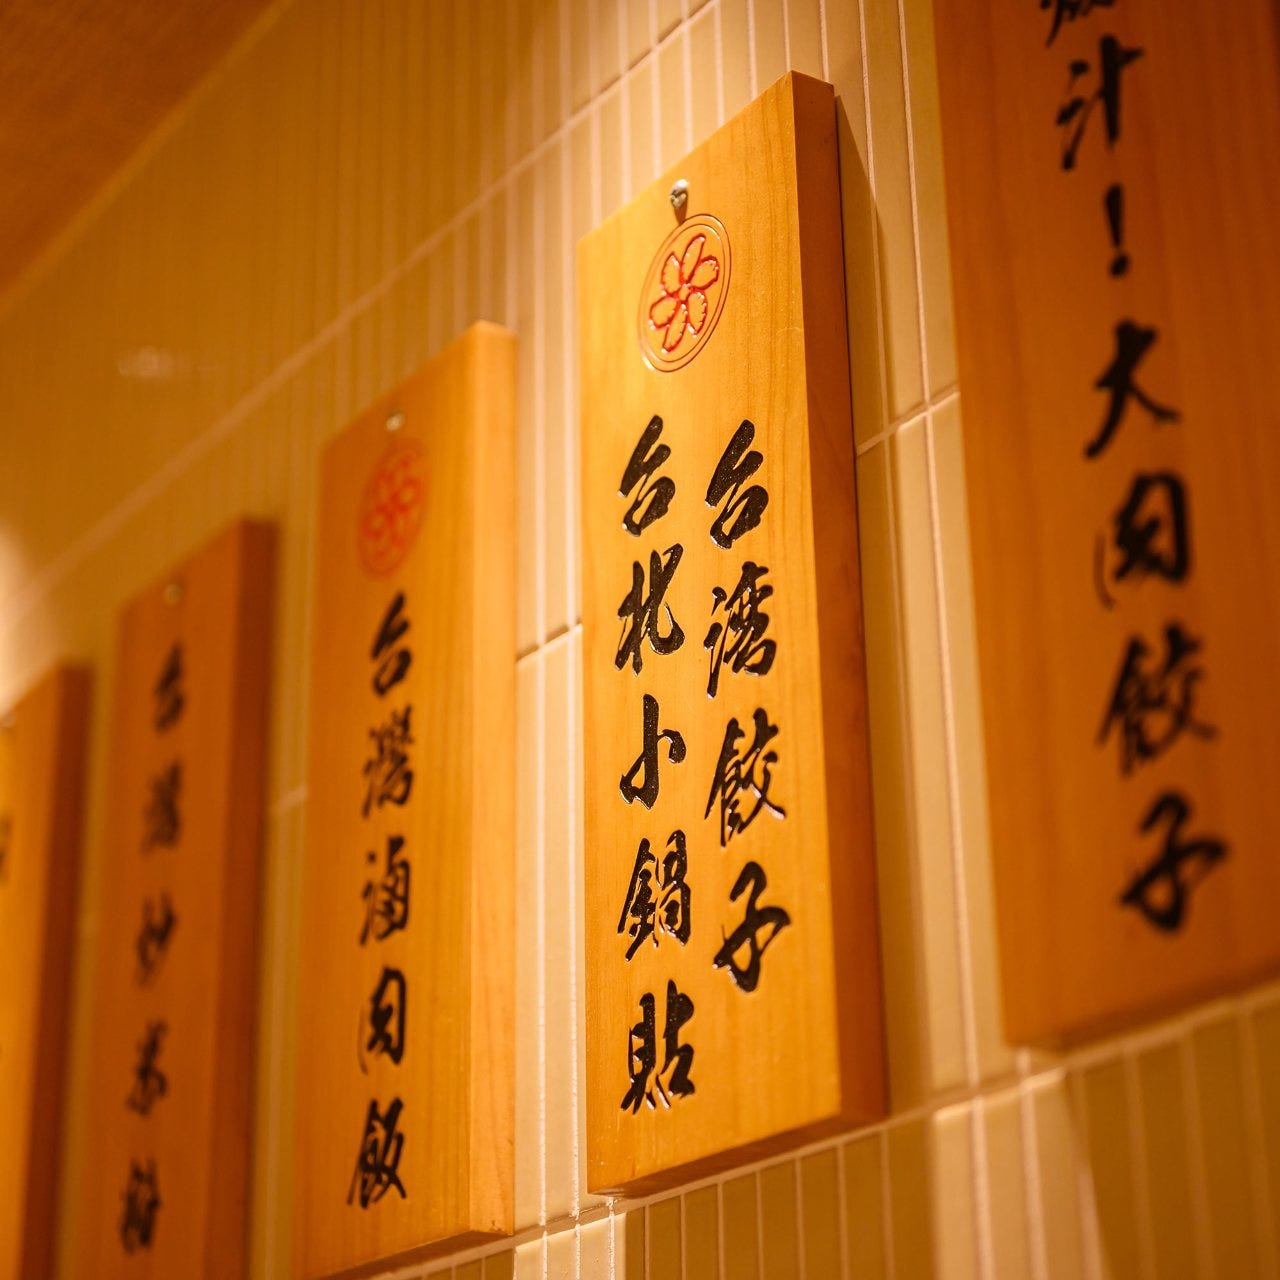 汁！大肉餃子
台湾餃子
台北小鍋貼
台灣滷肉飯
台湾炒米粉